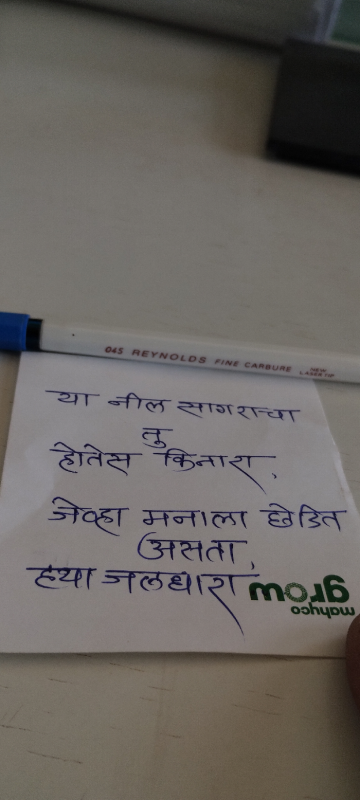 045 REYNOLDS FINE CARBURE NEW LASER TIP
या नील सागराचा
तु
होतेस किनारा,
जेव्हा मनाला छेडित
असता,
हया जलधारा
mahyco
grow